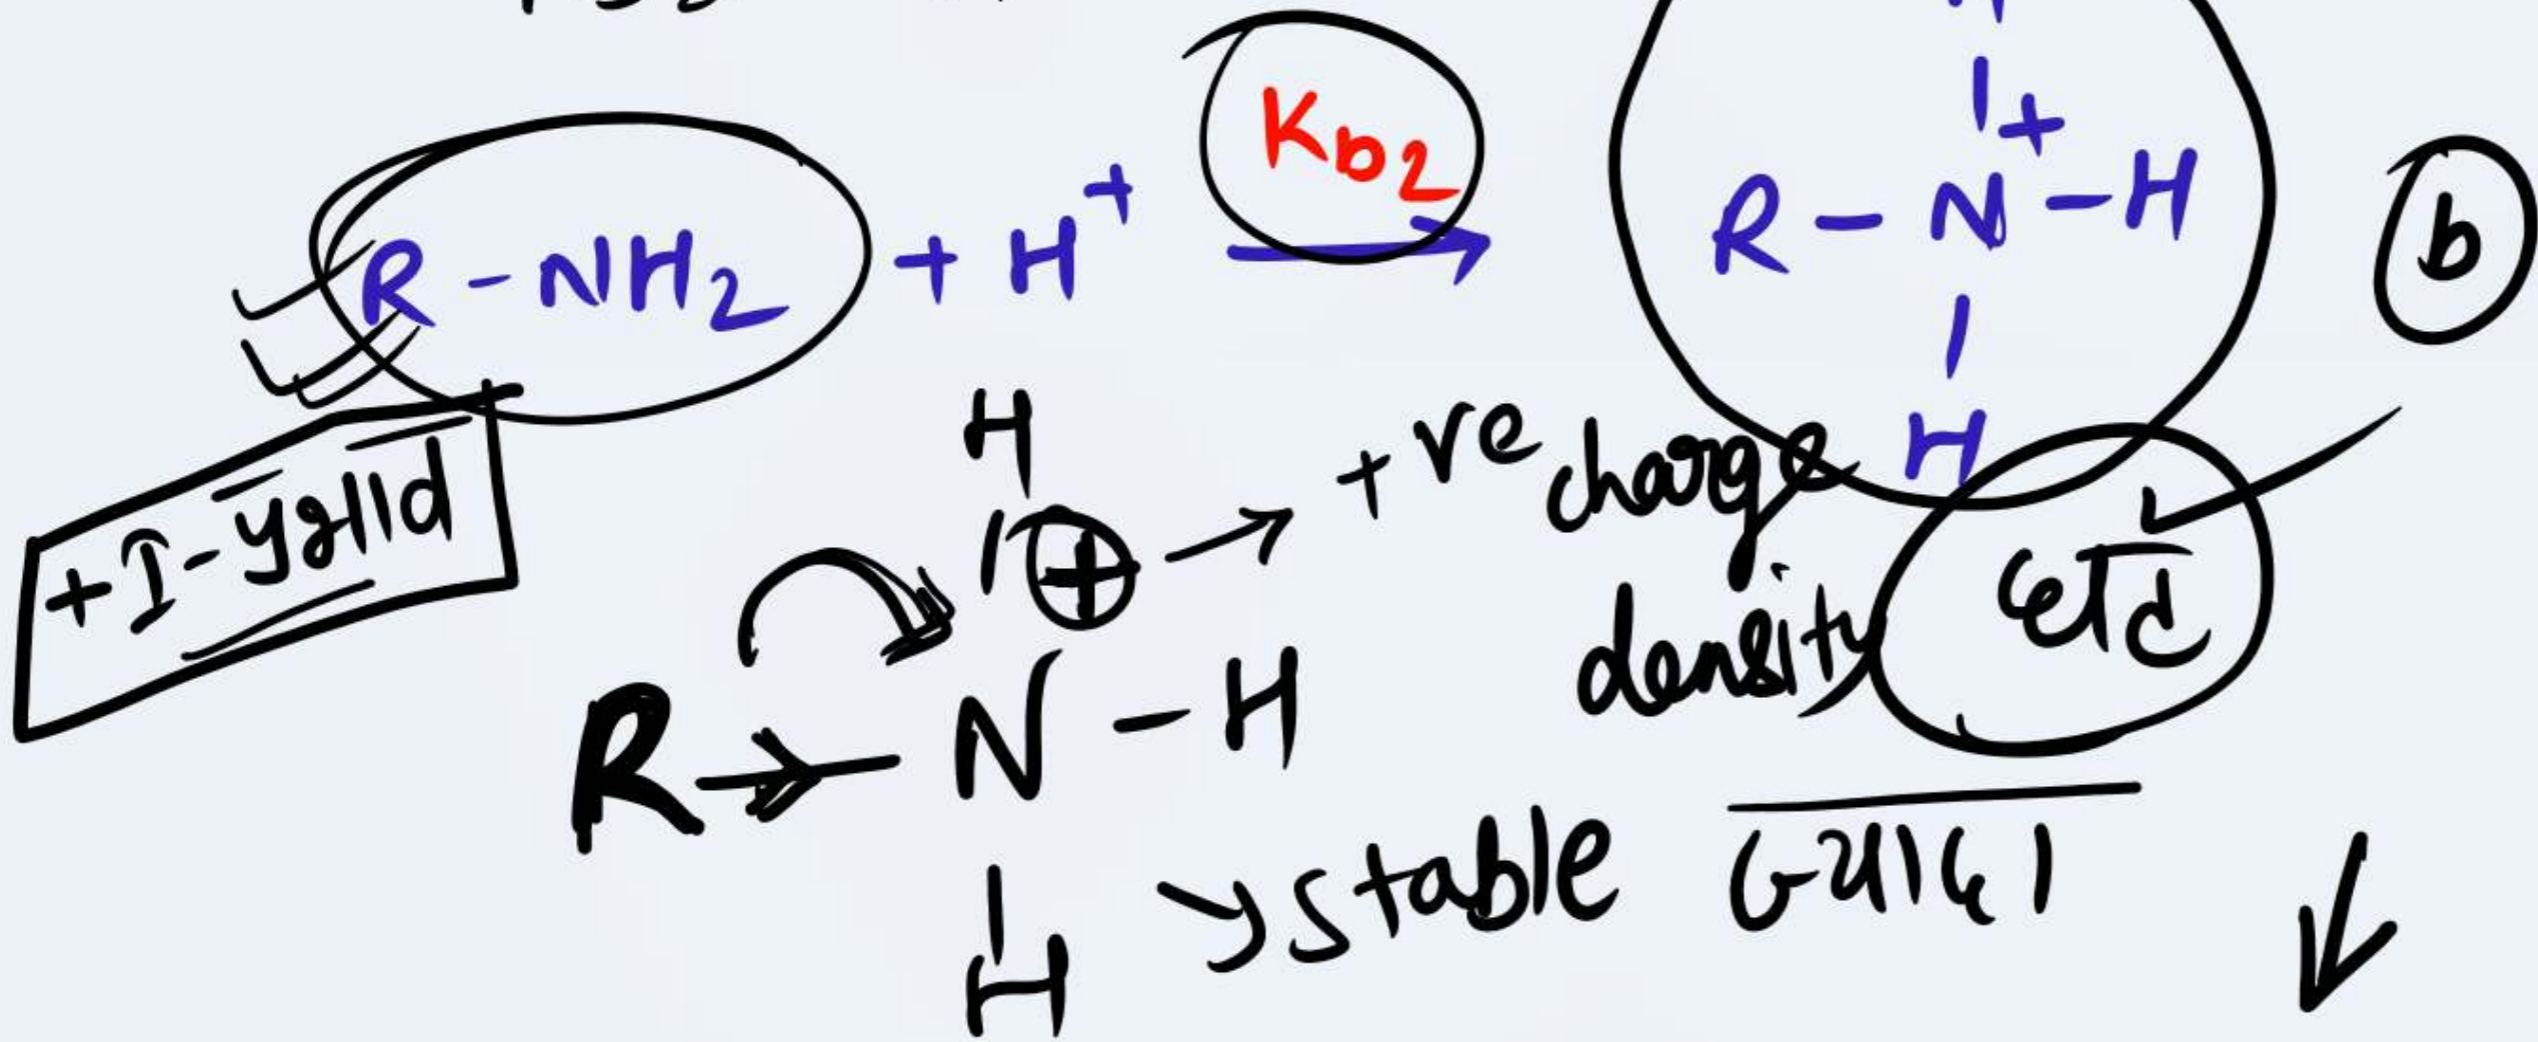 R-NH₂ + H⁺ Kb₂ → R-N⁺-H
H
b
H
+I-प्रभाव
H
⊕ → +ve charge
density घटे
R→N-H
H
stable ज्यादा